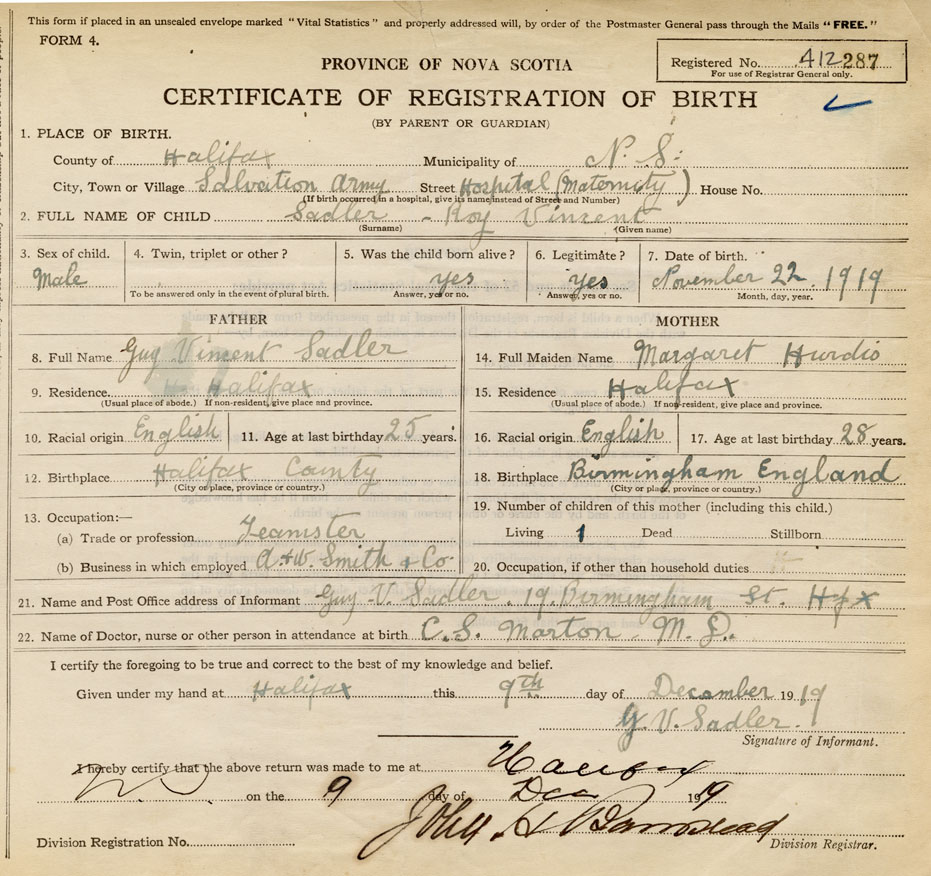 This form if placed in an unsealed envelope marked "Vital Statistics" and properly addressed will, by order of the Postmaster General pass through the Mails "FREE."
FORM 4.
Registered No. 412287
For use of Registrar General only.
PROVINCE OF NOVA SCOTIA
CERTIFICATE OF REGISTRATION OF BIRTH
(BY PARENT OR GUARDIAN)
1. PLACE OF BIRTH.
County of Halifax Municipality of N. S.
City, Town or Village Salvation Army Street Hospital (Maternity) House No.
(If birth occurred in a hospital, give its name instead of Street and Number)
2. FULL NAME OF CHILD Sadler - Roy Vincent
(Surname) (Given name)
3. Sex of child. 4. Twin, triplet or other? 5. Was the child born alive? 6. Legitimate? 7. Date of birth.
Male yes yes November 22 1919
To be answered only in the event of plural birth. Answer, yes or no. Answer, yes or no. Month, day, year.
FATHER
8. Full Name Guy Vincent Sadler
9. Residence Halifax
(Usual place of abode.) If non-resident, give place and province.
10. Racial origin English 11. Age at last birthday 25 years.
12. Birthplace Halifax County
(City or place, province or country.)
13. Occupation:—
(a) Trade or profession Teamster
(b) Business in which employed A. & W. Smith & Co.
MOTHER
14. Full Maiden Name Margaret Hurdis
15. Residence Halifax
(Usual place of abode.) If non-resident, give place and province.
16. Racial origin English 17. Age at last birthday 28 years.
18. Birthplace Birmingham England
(City or place, province or country.)
19. Number of children of this mother (including this child.)
Living 1 Dead Stillborn
20. Occupation, if other than household duties
21. Name and Post Office address of Informant Guy V. Sadler. 19. Birmingham St. Hfx
22. Name of Doctor, nurse or other person in attendance at birth C. S. Marton. M. D.
I certify the foregoing to be true and correct to the best of my knowledge and belief.
Given under my hand at Halifax this 9th day of December 1919
G. V. Sadler.
Signature of Informant.
I hereby certify that the above return was made to me at Halifax
N.S. on the 9 day of Dec 1919
John H
Division Registration No. Division Registrar.